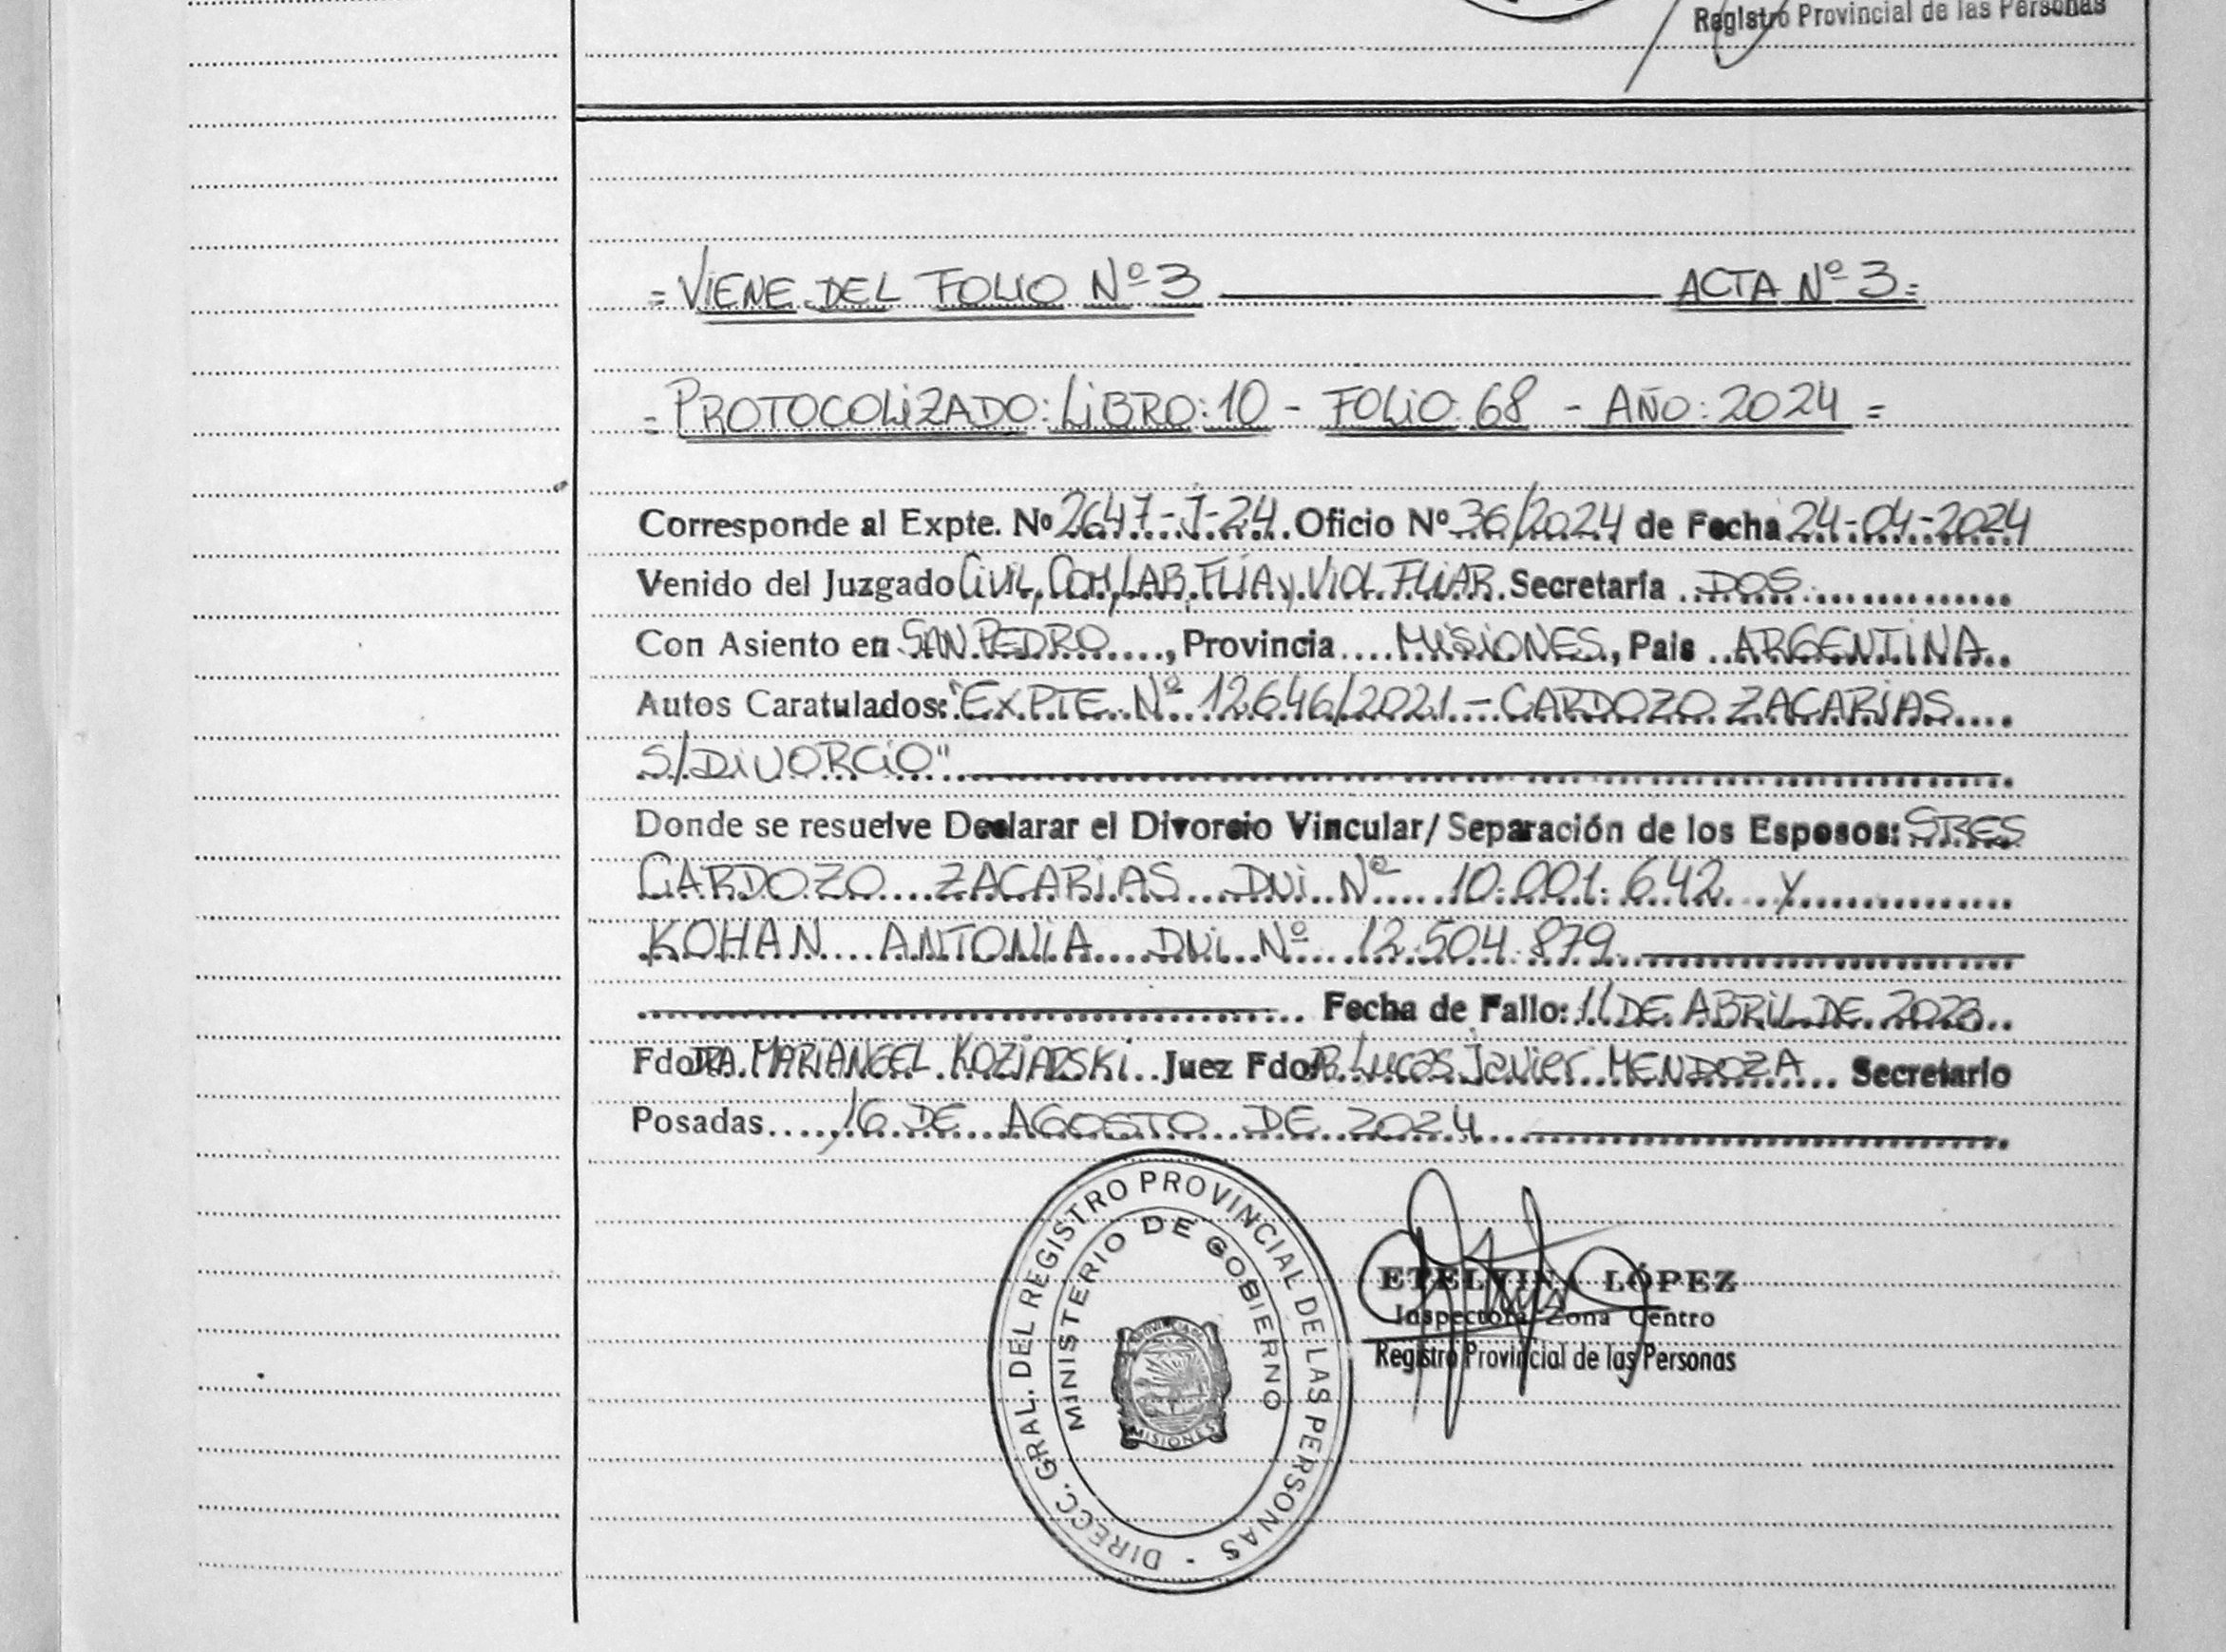 Registro Provincial de las Personas
= VIENE DEL FOLIO Nº 3 ACTA Nº 3 =
= PROTOCOLIZADO: LIBRO: 10 - FOLIO 68 - AÑO: 2024 =
Corresponde al Expte. Nº 2647-J-24. Oficio Nº 36/2024 de Fecha 24-04-2024
Venido del Juzgado Civil, COM, LAB, FLIA y VIOL. FLIAR. Secretaría DOS
Con Asiento en SAN PEDRO, Provincia MISIONES, País ARGENTINA
Autos Caratulados: "EXPTE. Nº 12646/2021 - CARDOZO ZACARIAS
S/DIVORCIO"
Donde se resuelve Declarar el Divorcio Vincular/Separación de los Esposos: SRES
CARDOZO ZACARIAS DNI Nº 10.001.642 y
KOHAN ANTONIA DNI Nº 12.504.879
Fecha de Fallo: 11 DE ABRIL DE 2023
Fdo DRA. MARIANGEL KOZIARSKI Juez Fdo DR. Lucas Javier MENDOZA Secretario
Posadas 16 DE AGOSTO DE 2024
DIRECC. GRAL. DEL REGISTRO PROVINCIAL DE LAS PERSONAS -
MINISTERIO DE GOBIERNO
MISIONES
ETELVINA LÓPEZ
Inspectora Zona Centro
Registro Provincial de las Personas